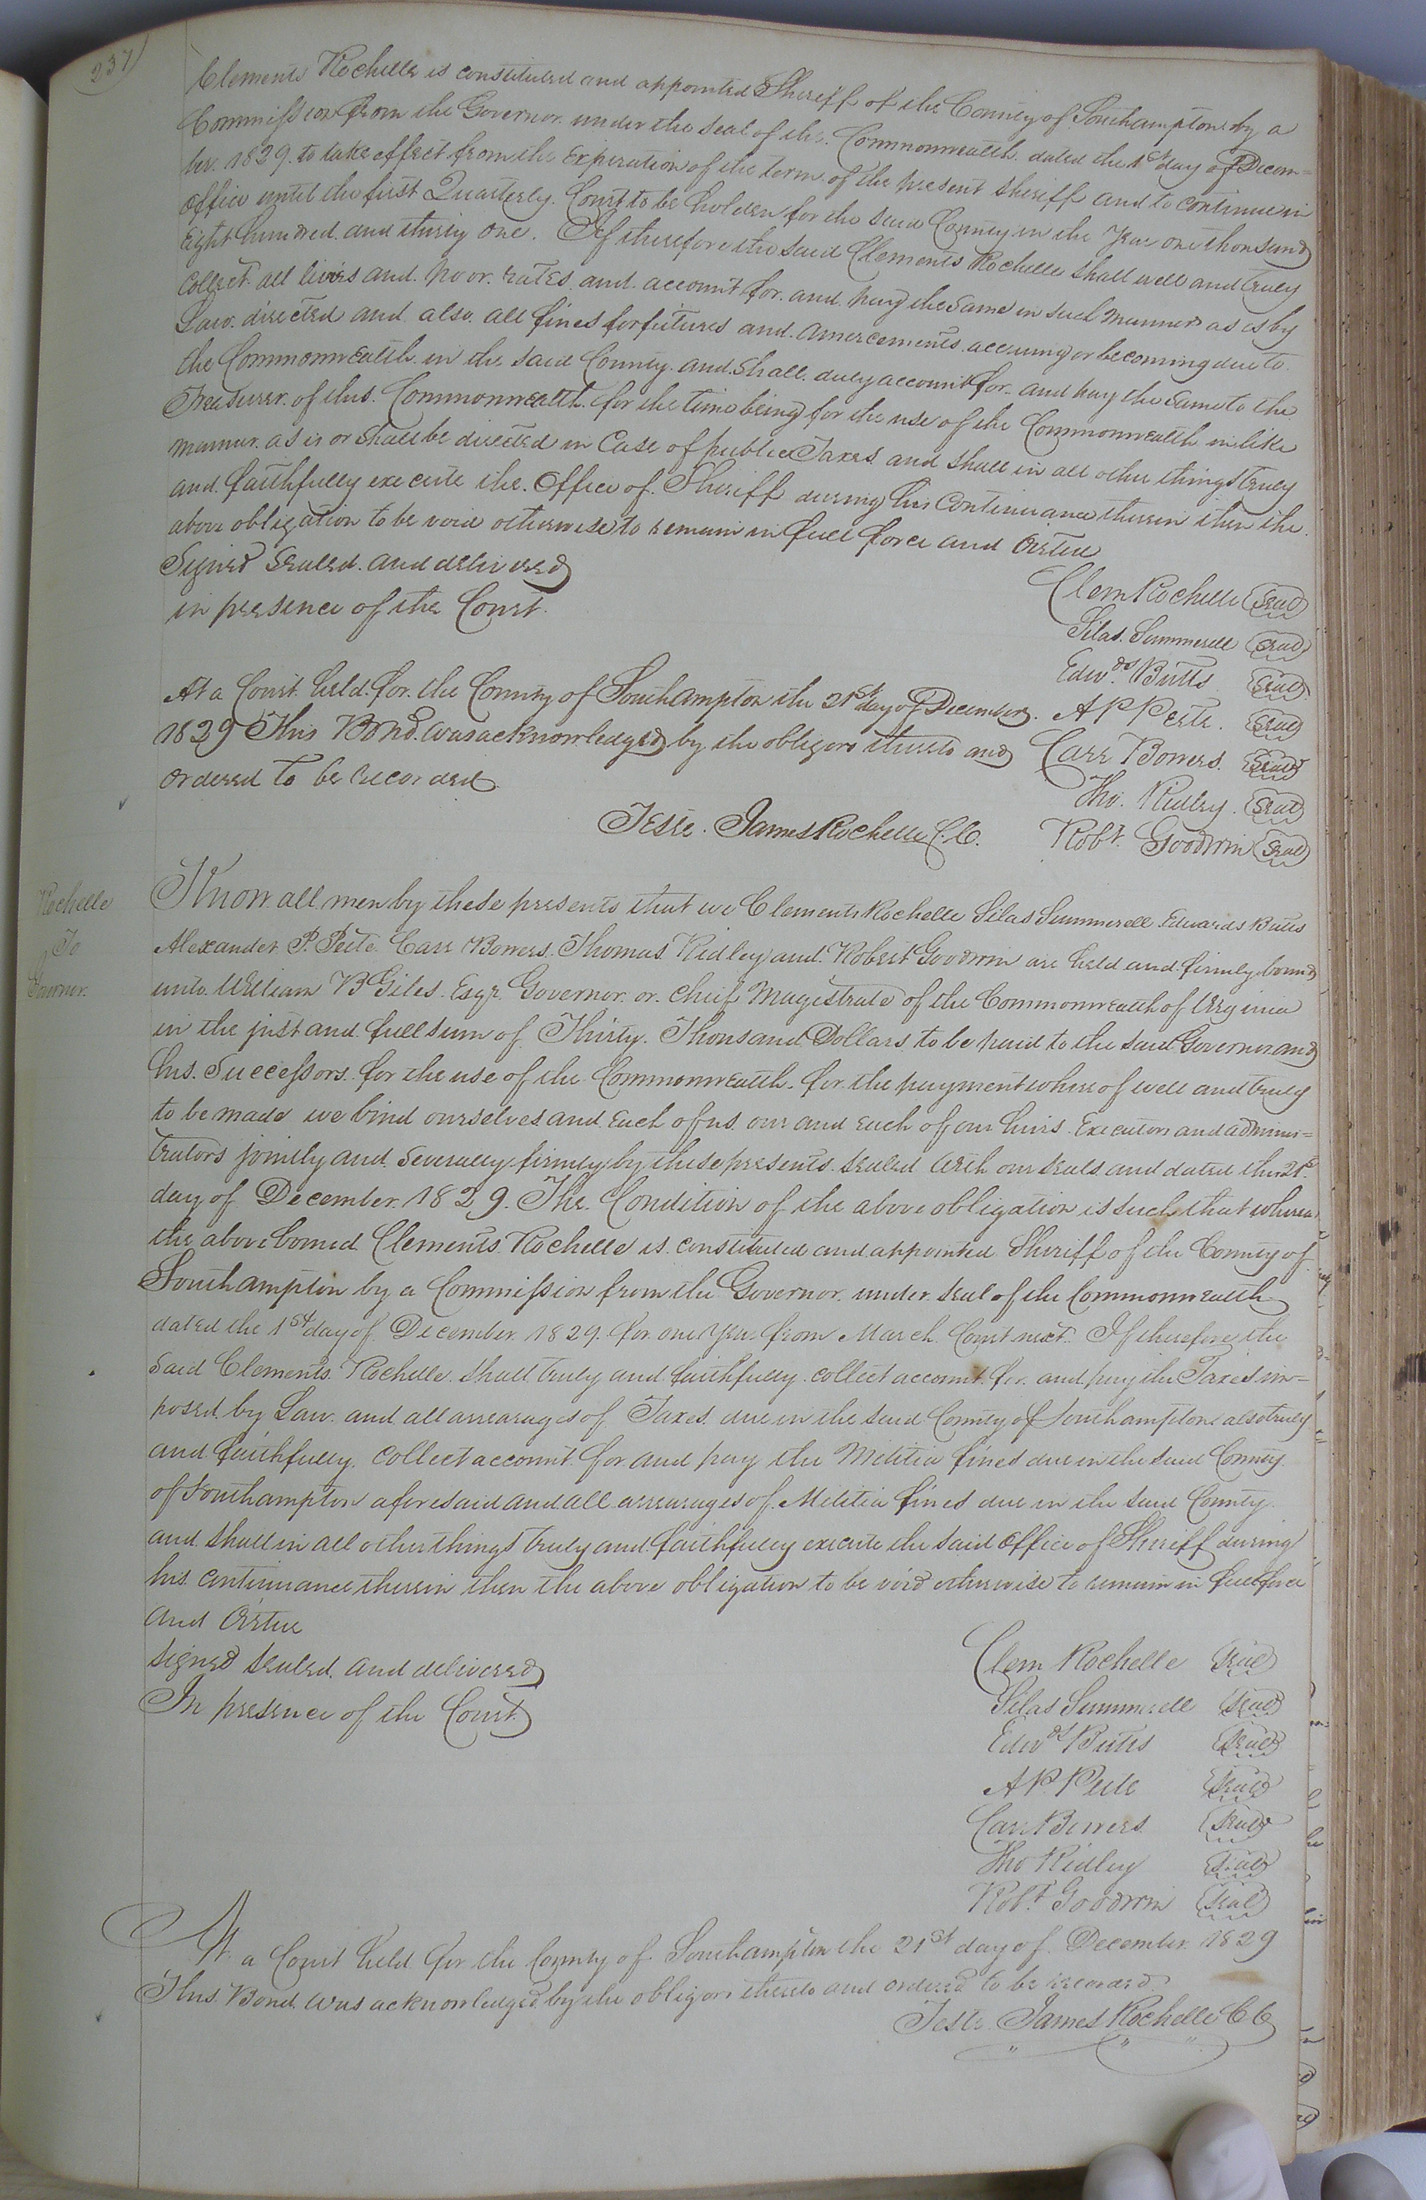 237
Clements Rochelle is constituted and appointed Sheriff of the County of Southampton by a
Commission from the Governor under the seal of the Commonwealth dated the 1st day of Decem=
ber 1829 to take effect from the Expiration of the term of the present Sheriff and to continue in
office until the first Quarterly Court to be holden for the said County in the Year one thousand
Eight hundred and thirty one. If therefore the said Clements Rochelle shall well and truly
Collect all levies and poor rates and account for and pay the same in such manner as is by
Law directed and also all fines forfeitures and amercements accruing or becoming due to
the Commonwealth in the said County and shall duly account for and pay the same to the
Treasurer of this Commonwealth for the time being for the use of the Commonwealth in like
manner as is or shall be directed in Case of public Taxes and shall in all other things truly
and faithfully execute the Office of Sheriff during his Continuance therein then the
above obligation to be void otherwise to remain in full force and virtue
Signed Sealed and delivered
in presence of the Court
Clem Rochelle Seal
Silas Summerell Seal
Edwds Butts Seal
A P Peete Seal
Carr Bowers Seal
Tho. Ridley Seal
Robt Goodwin Seal
At a Court held for the County of Southampton the 21st day of December
1829 This Bond was acknowledged by the obligors thereto and
ordered to be recorded
Teste. James Rochelle C.C.
Rochelle
To
Governor
Know all men by these presents that we Clements Rochelle Silas Summerell Edwards Butts
Alexander P. Peete Carr Bowers Thomas Ridley and Robert Goodwin are held and firmly bound
unto William B Giles Esqr. Governor or chief Magistrate of the Commonwealth of Virginia
in the just and full sum of Thirty Thousand Dollars to be paid to the said Governor and
his Successors for the use of the Commonwealth for the payment whereof well and truly
to be made we bind ourselves and Each of us our and Each of our heirs Executors and adminis=
trators jointly and severally firmly by these presents sealed With our seals and dated this 21st
day of December 1829. The Condition of the above obligation is such that whereas
the above bound Clements Rochelle is constituted and appointed Sheriff of the County of
Southampton by a Commission from the Governor under seal of the Commonwealth
dated the 1st day of December 1829 for one Year from March Court next. If therefore the
Said Clements Rochelle shall truly and faithfully collect account for and pay the Taxes im=
posed by Law and all arrearages of Taxes due in the said County of Southampton also truly
and faithfully collect account for and pay the Militia fines due in the said County
of Southampton aforesaid and all arrearages of Militia fines due in the said County
and shall in all other things truly and faithfully execute the said office of Sheriff during
his continuance therein then the above obligation to be void otherwise to remain in full force
and virtue
Signed sealed and delivered
In presence of the Court
Clem Rochelle Seal
Silas Summerell Seal
Edwds Butts Seal
A P. Peete Seal
Carr Bowers Seal
Tho Ridley Seal
Robt Goodwin Seal
At a Court held for the County of Southampton the 21st day of December 1829
This Bond was acknowledged by the obligors thereto and ordered to be recorded
Teste James Rochelle C C